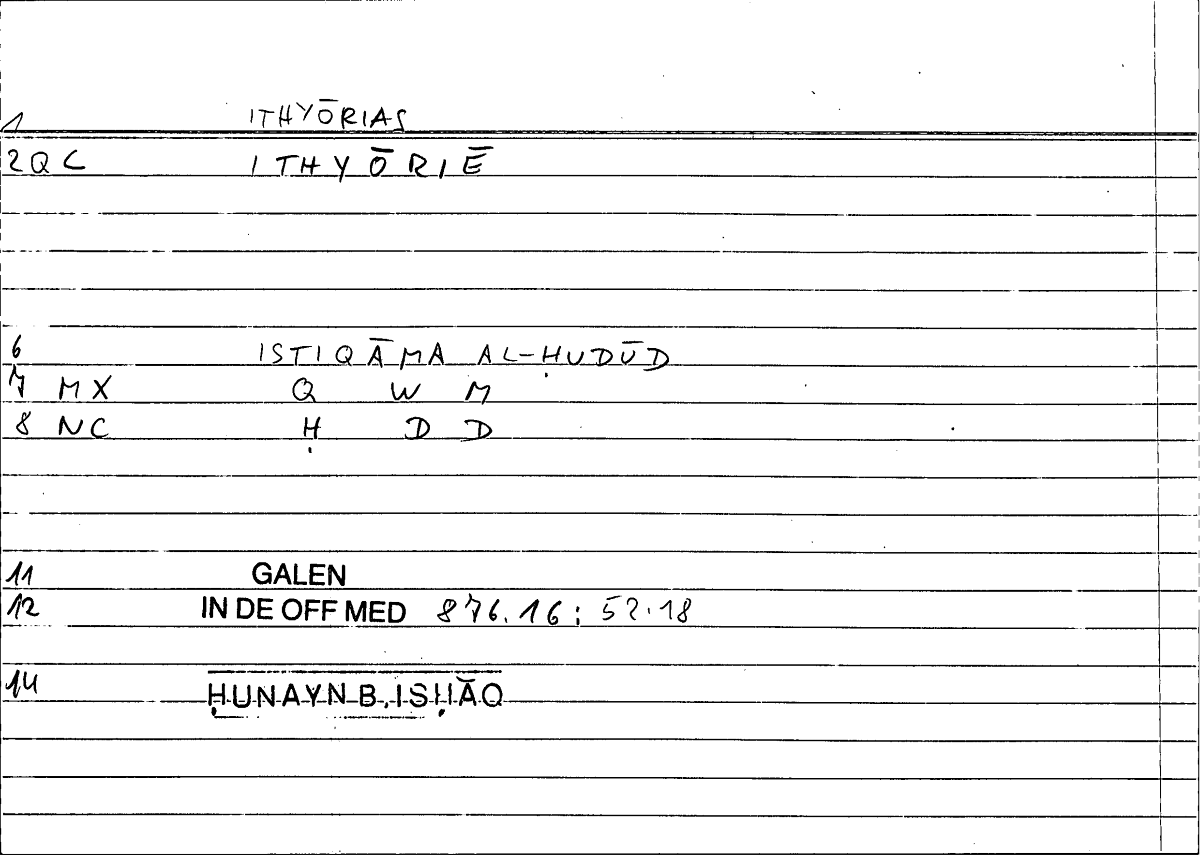 1 ITHYŌRIAS
2 QC ITHYŌRIĒ
6 ISTIQĀMA AL-ḤUDŪD
7 MX Q W M
8 NC Ḥ D D
11 GALEN
12 IN DE OFF MED 876.16; 52.18
14 ḤUNAYN B. ISḤĀQ